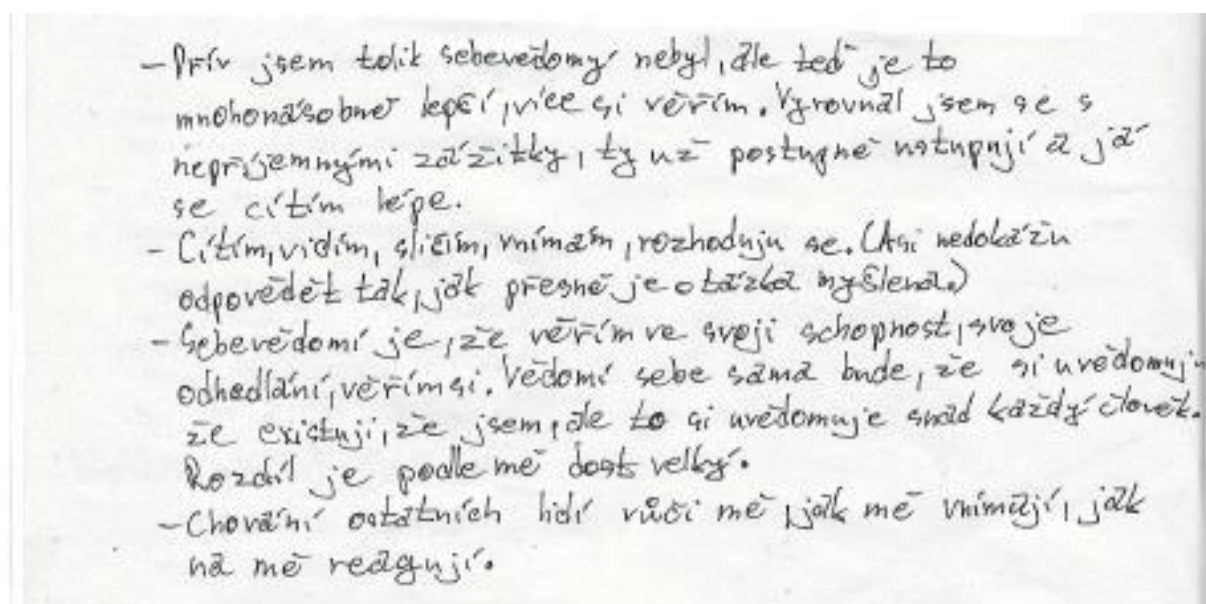 - Prív jsem tolik sebevědomý nebyl, ale teď je to
mnohonásobně lepčí, více si věřím. Vyrovnal jsem se s
nepříjemnými zážitky, ty už postupně ustupují a já
se cítím lépe.
- Cítím, vidím, sličím, vnímám, rozhoduju se. (Asi nedokážu
odpovědět tak, jak přesně je otázka myšlena.)
- Sebevědomí je, že věřím ve svoji schopnost, svoje
odhodlání, věřím si. Vědomí sebe sama bude, že si uvědomuju
že existuji, že jsem, ale to si uvědomuje snad každý člověk.
Rozdíl je podle mě dost velký.
- Chování ostatních lidí vůči mě, jak mě vnímají, jak
na mě reagují.